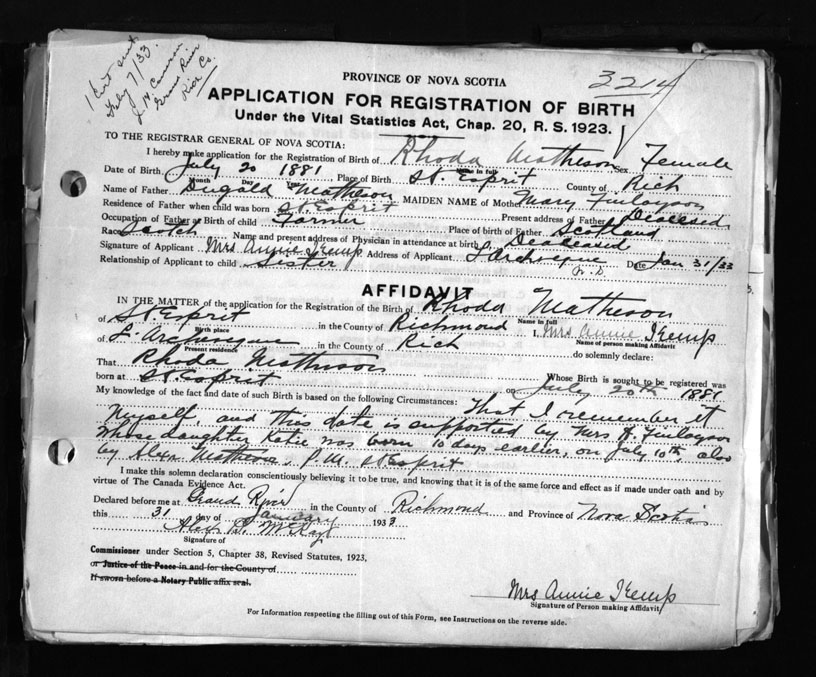 1 Cert sent
Feby 7/33
Grand River
Rich Co.
3214
PROVINCE OF NOVA SCOTIA
APPLICATION FOR REGISTRATION OF BIRTH
Under the Vital Statistics Act, Chap. 20, R. S. 1923.
TO THE REGISTRAR GENERAL OF NOVA SCOTIA:
I hereby make application for the Registration of Birth of Rhoda Matheson Sex Female
Name in full
Date of Birth July 20 1881 Place of Birth St. Esprit County of Rich
Month Day Year
Name of Father Dugald Matheson MAIDEN NAME of Mother Mary Finlayson
Residence of Father when child was born St Esprit Present address of Father Deceased
Occupation of Father at Birth of child Farmer Place of birth of Father Scotland
Race Scotch Name and present address of Physician in attendance at birth Deceased
Signature of Applicant Mrs Annie Kemp Address of Applicant L'Archeveque Date Jan 31/33
Relationship of Applicant to child Sister
AFFIDAVIT
IN THE MATTER of the application for the Registration of the Birth of Rhoda Matheson
Name in full
of St. Esprit in the County of Richmond I, Mrs Annie Kemp
Birth place Name of person making Affidavit
of L'Archeveque in the County of Rich do solemnly declare:
Present residence
That Rhoda Matheson Whose Birth is sought to be registered was
born at St. Esprit on July 20th 1881
My knowledge of the fact and date of such Birth is based on the following Circumstances: That I remember it
myself, and this date is supported by Mrs A. Finlayson
whose daughter Katie was born 10 days earlier, on July 10th, also
by Alex Matheson, P.M. St Esprit
I make this solemn declaration conscientiously believing it to be true, and knowing that it is of the same force and effect as if made under oath and by
virtue of The Canada Evidence Act.
Declared before me at Grand River in the County of Richmond and Province of Nova Scotia
this 31 day of January 1933
Signature of
Commissioner under Section 5, Chapter 38, Revised Statutes, 1923,
or Justice of the Peace in and for the County of
If sworn before a Notary Public affix seal.
Mrs Annie Kemp
Signature of Person making Affidavit
For Information respecting the filling out of this Form, see Instructions on the reverse side.